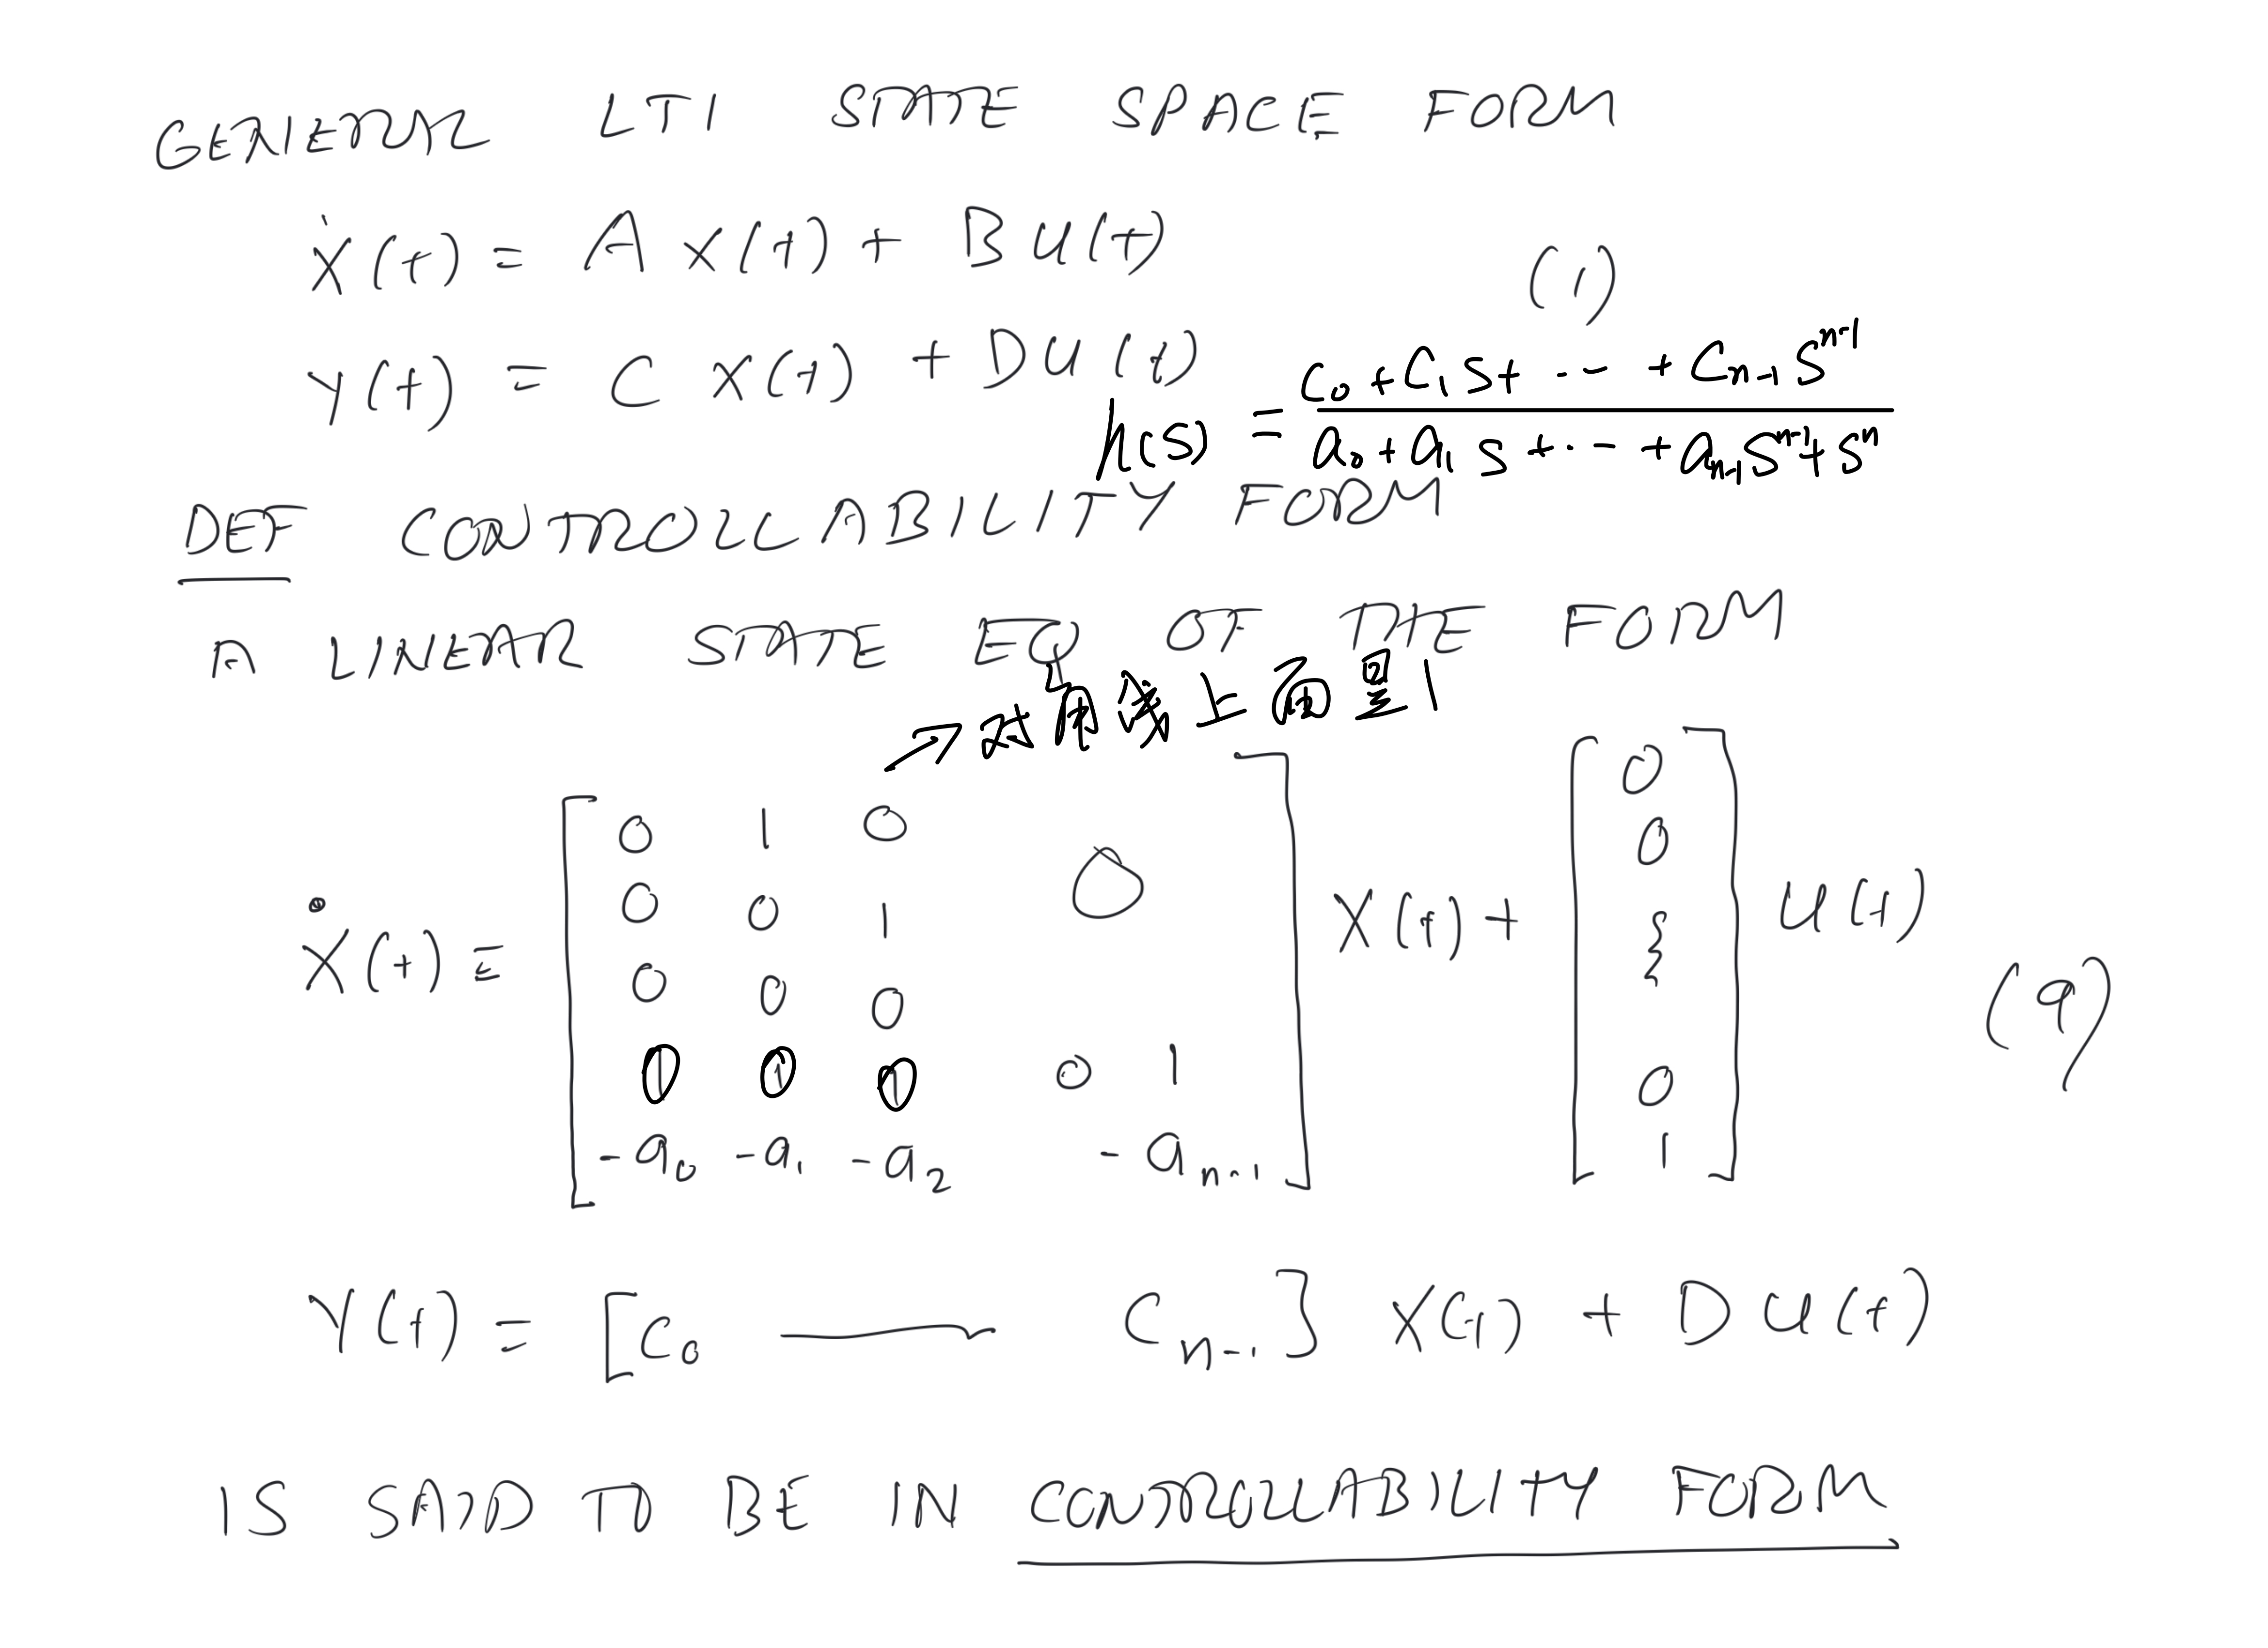 GENERAL LTI STATE SPACE FORM
Ẋ(t) = A X(t) + B U(t)
(1)
Y(t) = C X(t) + D U(t)
h(s) = (c₀ + c₁s + ··· + cₙ₋₁sⁿ⁻¹) / (a₀ + a₁s + ··· + aₙ₋₁sⁿ⁻¹ + sⁿ)
DEF CONTROLLABILITY FORM
A LINEAR STATE EQ OF THE FORM
→ 对角线上面是1
0 1 0
0 0 1 0
Ẋ(t) = [ ] X(t) + [0 0 0 1] U(t)
0 0 0
(9)
0 0 0 0 1
-a₀ -a₁ -a₂ -aₙ₋₁
Y(t) = [C₀ — Cₙ₋₁] X(t) + D U(t)
IS SAID TO BE IN CONTROLLABILITY FORM